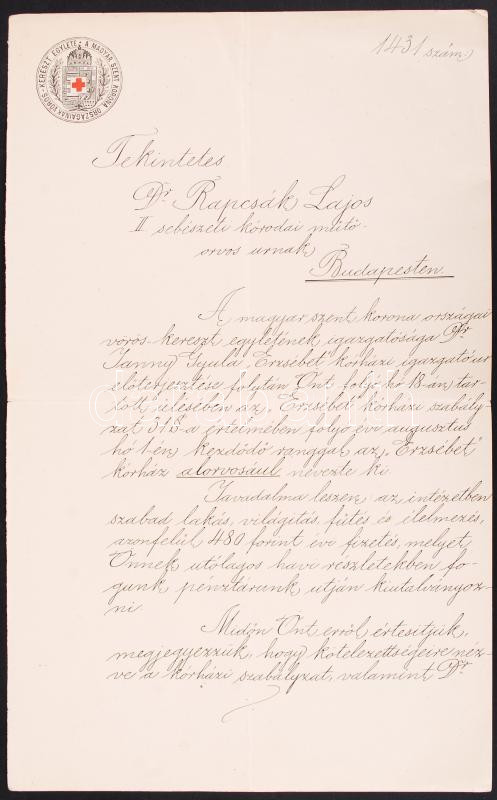 A MAGYAR SZENT KORONA ORSZÁGAINAK VÖRÖS-KERESZT EGYLETE
1431 szám.
Tekintetes
Dr Rapcsák Lajos
II sebészeti kórodai műtő-
orvos urnak
Budapesten.
A magyar szent korona országai
vörös-kereszt egyletének igazgatósága Dr
Janny Gyula "Erzsébet" kórházi igazgató úr
előterjesztése folytán Önt folyó hó 18-án tar-
tott ülésében az "Erzsébet" kórházi szabály-
zat 31§-a értelmében folyó évi augusztus
hó 1-én kezdődő ranggal az "Erzsébet"
kórház alorvosául nevezte ki.
Javadalma leszen, az intézetben
szabad lakás, világitás, fűtés és élelmezés,
azonfelül 480 forint évi fizetés, melyet
Önnek utólagos havi részletekben fo-
gunk pénztárunk utján kiutalványoz-
ni.
Midőn Önt erről értesitjük,
megjegyezzük, hogy kötelezettségeire néz-
ve a kórházi szabályzat, valamint Dr